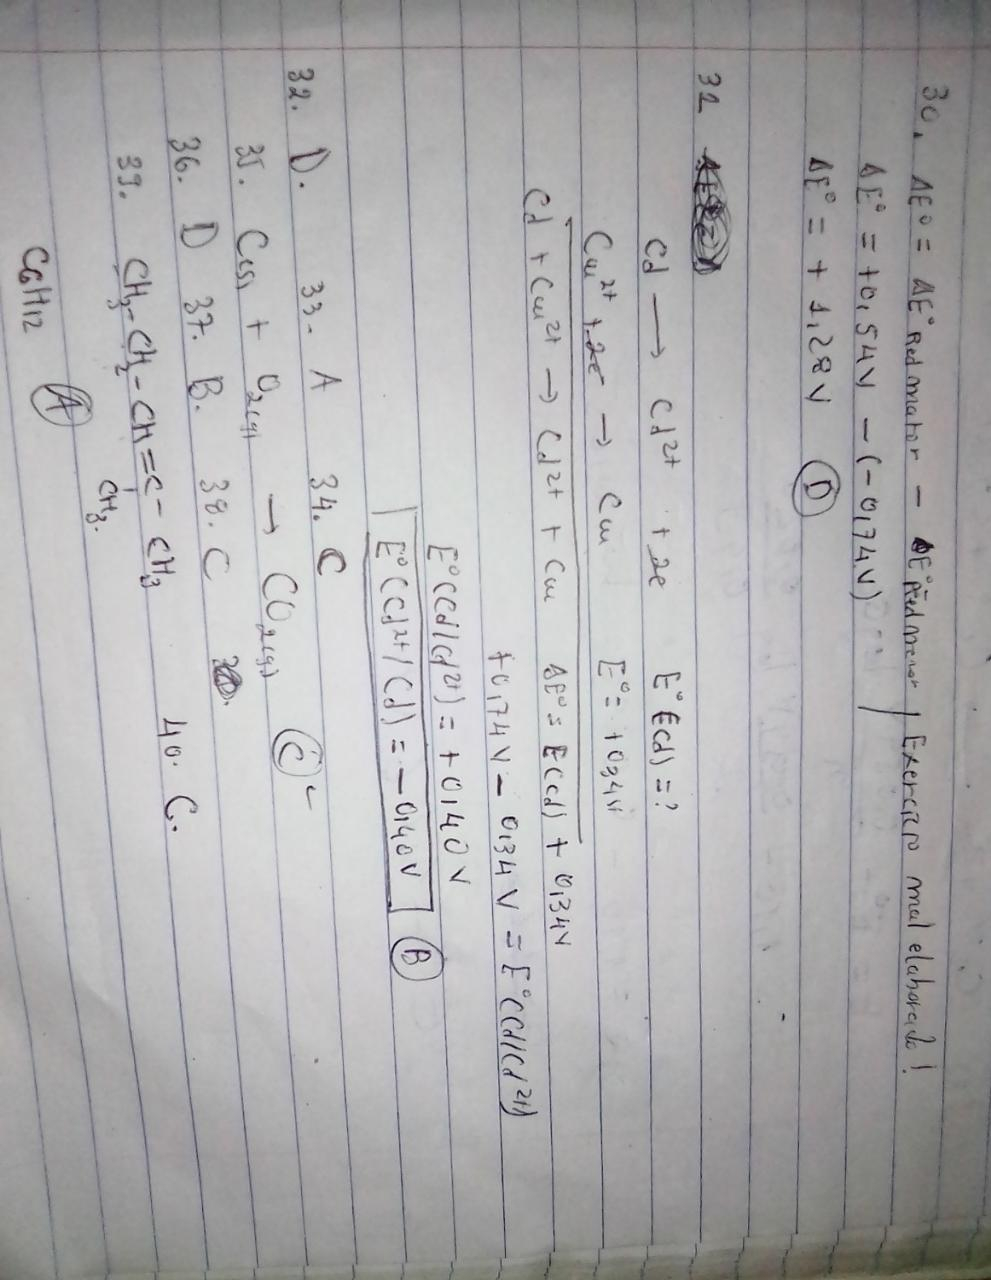 30. ΔE° = ΔE° Red maior - ΔE° Red menor / Exercício mal elaborado!
ΔE° = +0,54V - (-0,74V)
ΔE° = + 1,28V (D)
31
Cd → Cd²⁺ + 2e E°(Cd) = ?
Cu²⁺ + 2e → Cu E° = +0,34V
Cd + Cu²⁺ → Cd²⁺ + Cu ΔE° = E(Cd) + 0,34V
+0,74V - 0,34V = E°(Cd/Cd²⁺)
E°(Cd/Cd²⁺) = +0,40V
E°(Cd²⁺/Cd) = -0,40V (B)
32. D. 33. A 34. C
35. C(s) + O₂(g) → CO₂(g) (C)
36. D 37. B. 38. C
39. CH₃-CH₂-CH=C-CH₃ 40. C.
CH₃.
C6H12 (A)